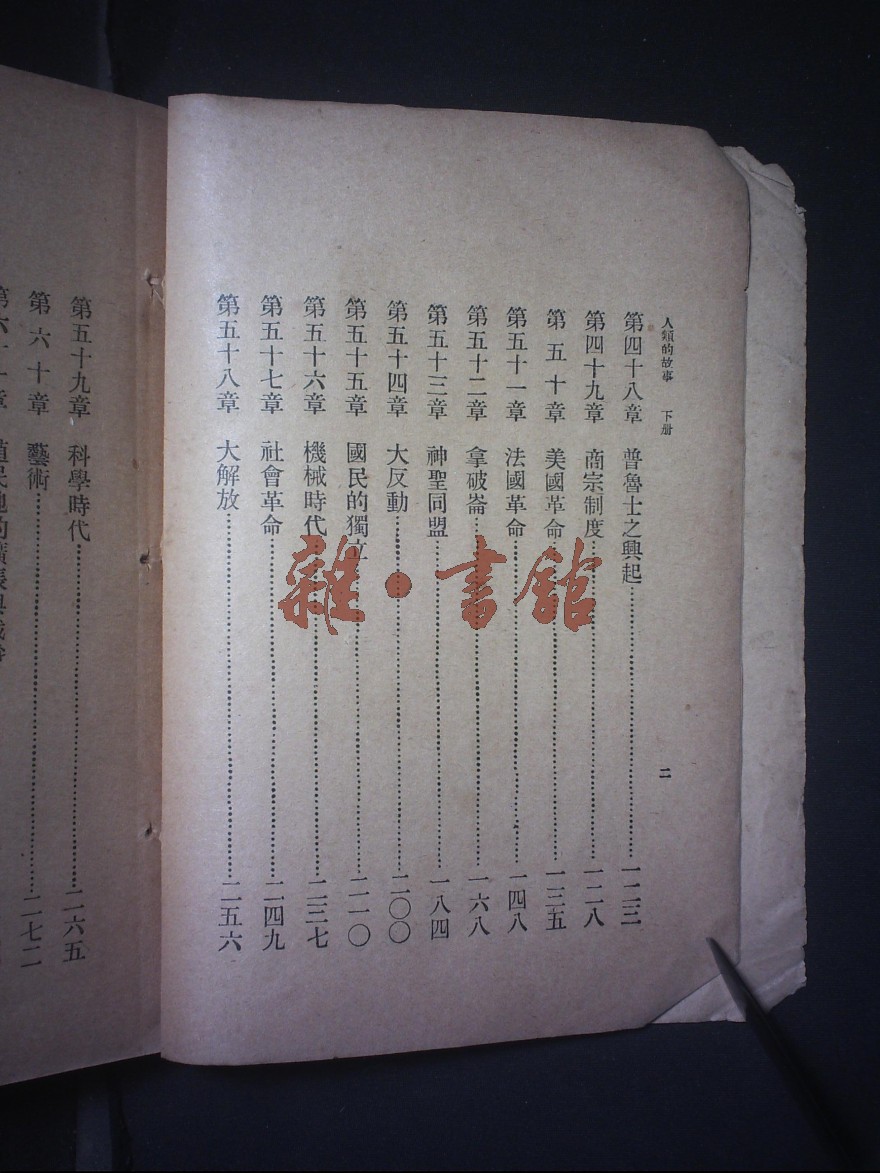 人類的故事 下册
二
第四十八章 普魯士之興起……一二三
第四十九章 商宗制度……一二八
第五十章 美國革命……一三五
第五十一章 法國革命……一四八
第五十二章 拿破崙……一六八
第五十三章 神聖同盟……一八四
第五十四章 大反動……二〇〇
第五十五章 國民的獨立……二一〇
第五十六章 機械時代……二三七
第五十七章 社會革命……二四九
第五十八章 大解放……二五六
第五十九章 科學時代……二六五
第六十章 藝術……二七二
雜·書館